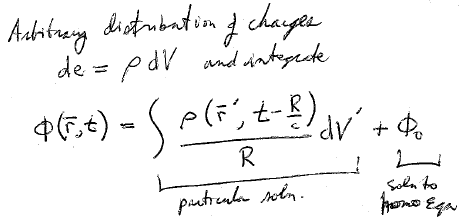 Arbitrary distribution of charges
de = ρ dV and integrate
Φ(r̄,t) = ∫ ρ(r̄′, t-R/c)/R dV′ + Φ₀
particular soln. soln to
homo Eqn